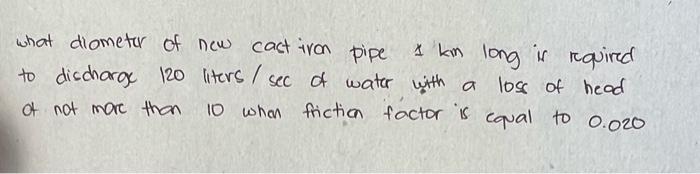 what diometer of new cast iron pipe 1 km long is required
to discharge 120 liters / sec of water with a loss of head
of not more than 10 when friction factor is equal to 0.020